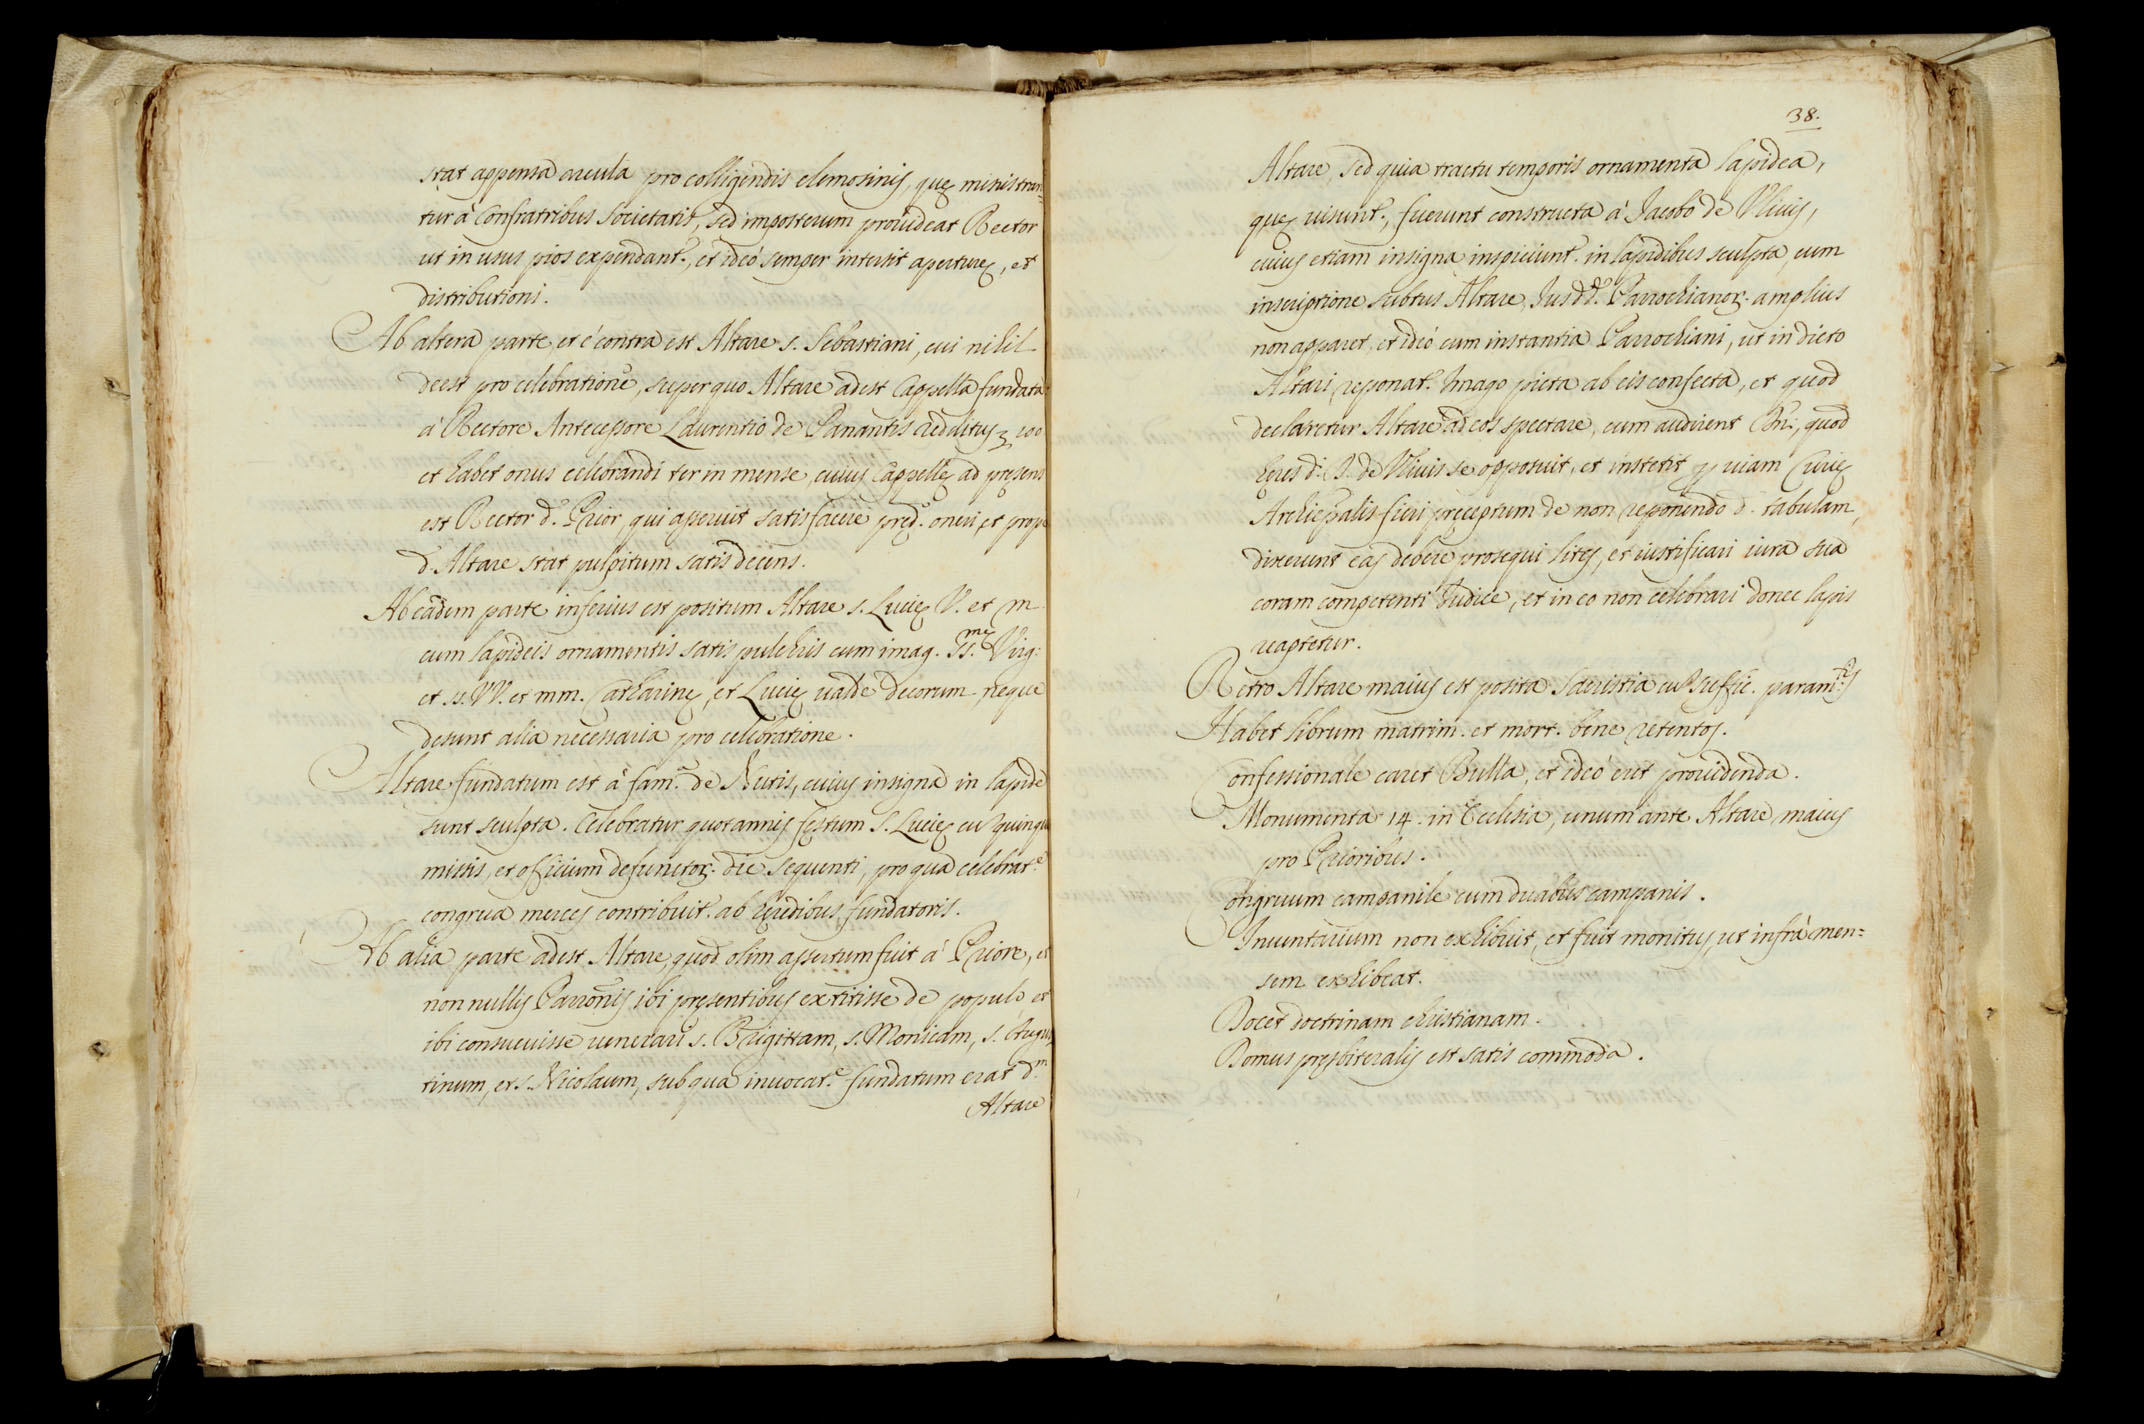 stat appensa arcula pro colligendis elemosinis, quę ministran=
tur à Confratribus Societatis, sed imposterum prouideat Rector
ut in usus pios expendant.r, et ideò semper intersit aperturę, et
distributioni.
Ab altera parte, et è contra est Altare s. Sebastiani, cui nihil
deest pro celebratione, super quo Altare adest Cappella fundata
à Rectore Antecessore Laurentio de Panantis redditus 100
et habet onus celebrandi ter in mense, cuius Cappellę ad pręsens
est Rector d.s Prior, qui aperuit satisfacere pred.o oneri, et prope
d. Altare stat pulpitum satis decens.
Ab eadem parte inferius est positum Altare s. Lucię V. et M
cum lapideis ornamentis satis pulchris cum imag. Ss.mę Virg:
et ss. VV. et mm. Catharinę, et Lucię ualde decorum, neque
desunt alia necessaria pro celebratione.
Altare fundatum est à fam.a de Neris, cuius insigna in lapide
sunt sculpta. Celebratur quotannis festum S. Lucię cu quinque
missis, et officium defunctor. die sequenti, pro qua celebrat.e
congrua merces contribuit.r ab heredibus fundatoris.
Ab alia parte adest Altare, quod olim assertum fuit à Priore, et
non nullis Parronis ibi pręsentibus extitisse de populo et
ibi consueuisse uenerari s. Brigittam, s. Monicam, s. Augus
tinum, et s. Nicolaum, sub qua inuocat.e fundatum erat d.m
Altare
38.
Altare, sed quia tractu temporis ornamenta lapidea,
quę uisunt.r, fuerunt constructa à Jacobo de Vliuis,
cuius etiam insigna inspiciunt.r in lapidibus sculpta, cum
inscriptione subtus Altare, Jus dd. Parrochianor. amplius
non apparet, et ideò cum instantia Parrochiani, ut in dicto
Altari reponat.r Imago picta ab eis confecta, et quod
declaretur Altare ad eos spectare, cum audirent quod
hęres d. J. de Vliuis se opposuit, et institit p uiam Curię
Archiepalis fieri pręceptum de non reponendo d. tabulam,
dixerunt eas debere prosequi lites, et iustificari iura sua
coram competenti Iudice, et in eo non celebrari donec lapis
reaptetur.
Retro Altare maius est posita Sacristia cu suffic. param.tis
Habet librum matrim. et mort. bene retentos.
Confessionale caret Bulla, et ideò erit prouidenda.
Monumenta 14. in Ecclesia, unum ante Altare maius
pro Prioribus.
Congruum campanile cum duabus campanis.
Inuentarium non exhibuit, et fuit monitus, ut infrà men=
sem exhibeat.
Docet doctrinam christianam.
Domus pręsbiteralis est satis commoda.